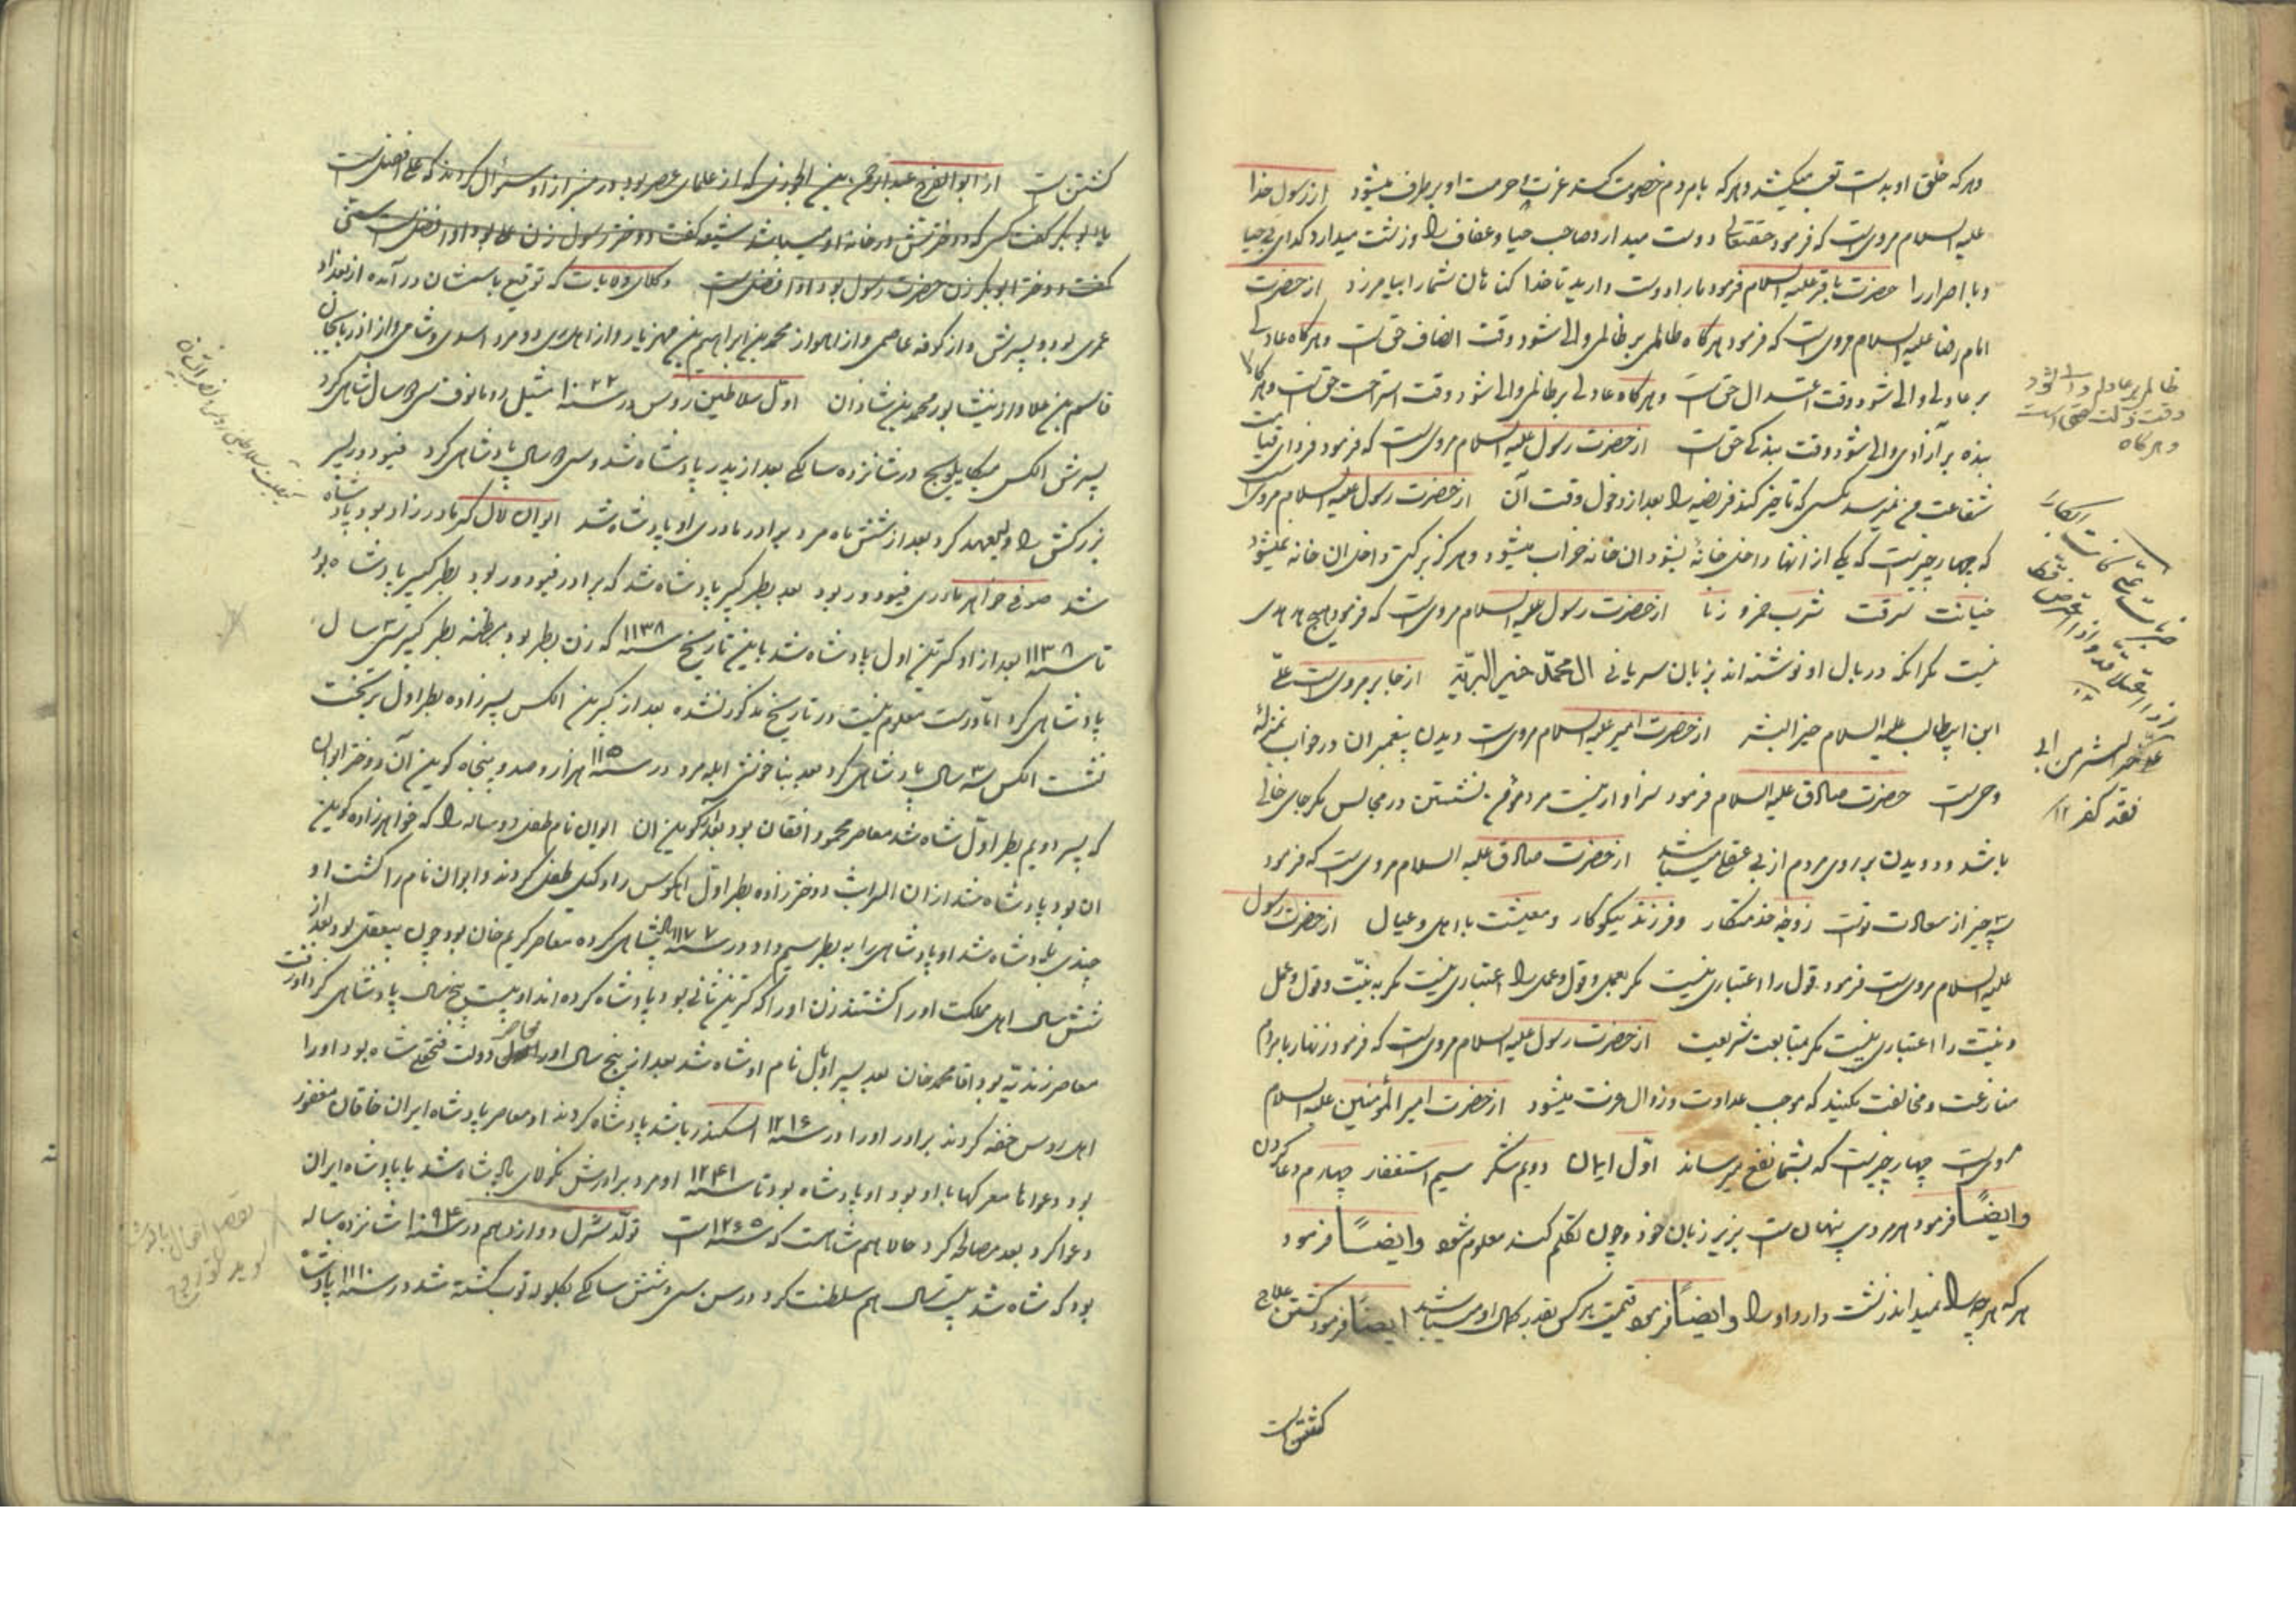 وهر که خلق او بدست تعب میکشد وهر که بامردم خصومت کند عزت وحرمت او برطرف میشود از رسول خدا
علیه السلام مرویست که فرمود حقتعالی دوست میدارد صاحب حیا وعفاف را وزشت میدارد کدای بی حیا
وبا اصرار را حضرت باقر علیه السلام فرمود مارا دوست دارید تا خدا کناهان شمارا بیامرزد از حضرت
امام رضا علیه السلام مرویست که فرمود هرکاه ظالمی بر ظالمی والی شود وقت انصاف حق است وهرکاه عادلی
بر عادلی والی شود وقت اعتدال حق است وهرکاه عادلی بر ظالمی والی شود وقت استراحت حق است وهرکاه
بنده بر آزادی والی شود وقت بندکی حق است از حضرت رسول علیه السلام مرویست که فرمود فردای قیامت
شفاعت من نمیرسد بکسی که تاخیر کند فریضه را بعد از دخول وقت آن از حضرت رسول علیه السلام مرویست
که چهار چیزست که یکی از انها داخل خانهٔ بشود ان خانه خراب میشود وهرکز برکت داخل ان خانه نمیشود
خیانت سرقت شرب خمر و زنا از حضرت رسول علیه السلام مرویست که فرمود هیچ هدهدی
نیست مکر انکه در بال او نوشته اند بزبان سریانی ال محمد خیر البریّة از جابر مرویست علی
ابن ابیطالب علیه السلام خیر البشر از حضرت امیر علیه السلام مرویست دیدن پیغمبران در خواب بمنزلهٔ
وحیست حضرت صادق علیه السلام فرمود سزاوار نیست مرد مؤمن نشستن در مجالس مکر جای خالی
باشد ودویدن بر روی مردم از بی عقلی میباشد از حضرت صادق علیه السلام مرویست که فرمود
سه چیز از سعادت تست زوجهٔ خدمتکار وفرزند نیکوکار ومعیشت با اهل وعیال از حضرت رسول
علیه السلام مرویست فرمود قول را اعتباری نیست مکر بعمل وقول وعمل را اعتباری نیست مکر به نیّت وقول وعمل
ونیّت را اعتباری نیست مکر بمتابعت شریعت از حضرت رسول علیه السلام مرویست که فرمود زنهار بامردم
منازعت ومخالفت نکنید که موجب عداوت وزوال عزت میشود از حضرت امیر المؤمنین علیه السلام
مرویست چهار چیزست که بشما نفع میرساند اوّل ایمان دویم شکر سیم استغفار چهارم دعا کردن
وایضاً فرمود هر مردی پنهان است بزیر زبان خود وچون تکلم کند معلوم شود وایضاً فرمود
هر که هرچه را نمیداند زشت دارد او را وایضاً فرمود قیمت هر کس بقدر کمال او میباشد ایضاً فرمود کشتن علاج
کشتن است
ظالمی بر عادلی والی شود
وقت ذلت حق است
وهرکاه
علی خیر البشر من ابی
فقد کفر ۱۲
کشتن است از ابوالفرج عبدالرحمن بن الجوزی که از علمای عصر بود در منبر از او سؤال کردند که علی افضل است
یا ابوبکر کفت کسی که دخترش در خانهٔ او میباشد شیعه کفت دختر رسول زن علی بود او افضل است سنی
کفت دختر ابوبکر زن حضرت رسول بود او افضل است وکلای ده بابت که توقیع باسمشان در آمده از بغداد
عمری بود وپسرش واز کوفه عاصمی واز اهواز محمد بن ابراهیم بن مهزیار واز اهل ری دو مرد اسدی وشامی واز اذربایجان
قاسم بن علا واز نیشابور محمد بن شاذان اوّل سلاطین روس در سنه ۱۰۲۲ میشیل رومانوف سی سال شاهی کرد
پسرش الکس میکایلویچ در شانزده سالکی بعد از پدر پادشاه شد وسی سال پادشاهی کرد فیودور پسر
بزرکش را ولیعهد کرد بعد از شش ماه مرد برادر مادری او پادشاه شد ایوان لال کر مادرزاد بود پادشاه
شد صوفی خواهر مادری فیودور بود بعد پطر کبیر پادشاه شد که برادر فیودور بود پطر کبیر پادشاه بود
تا سنه ۱۱۳۸ بعد از او کترین اول پادشاه شد باین تاریخ سنه ۱۱۳۸ که زن پطر بود بمظنه پطر کبیر سی سال
پادشاهی کرد امّا درست معلوم نیست در تاریخ مذکور نشده بعد از کترین الکس پسر زاده پطر اول بر تخت
نشست الکس سه سال پادشاهی کرد بعد بناخوشی ابله مرد در سنه ۱۱۵۰ هزار وصد وپنجاه کوین آن دختر ایوان
که پسر دویم پطر اوّل شاه شد معاصر محمود افغان بود بعد از کوین ان ایوان نام طفل دو ساله را که خواهرزاده کوین
ان بود پادشاه شد از ان الیزابت دخترزاده پطر اوّل انکوس را وکیل طفل کردند وایوان نام را کشت او
چندی پادشاه شد او پادشاهی را به پطر سیم داد در سنه ۱۱۷۷ شاهی کرده معاصر کریم خان بود چون بیعقل بود بعد از
شش سال اهل مملکت او را کشتند زن او را که کترین ثانی بود پادشاه کرده اند او بیست پنج سال پادشاهی کرد او رفت
معاصر زندیّه بود اقا محمد خان بعد پسر او پاول نام او شاه شد بعد از پنج سال او را معاصر دولت فتحعلی شاه بود او را
اهل روس خفه کردند برادر او را در سنه ۱۲۱۶ اسکندر باشد پادشاه کردند او معاصر پادشاه ایران خاقان مغفور
بود دعواها معرکها با او بود او پادشاه بود تا سنه ۱۲۴۱ او مرد برادرش نکولای پادشاه شد با پادشاه ایران
دعوا کرد بعد مصالحه کرد حالا هم شاهست که سنه ۱۲۶۵ است تولّد شرل دوازدهم در سنه ۱۰۹۴ شانزده ساله
بود که شاه شد بیست سال هم سلطنت کرد در سن سی وشش سالکی بکلوله توپ کشته شد در سنه ۱۱۱۰ پادشاه